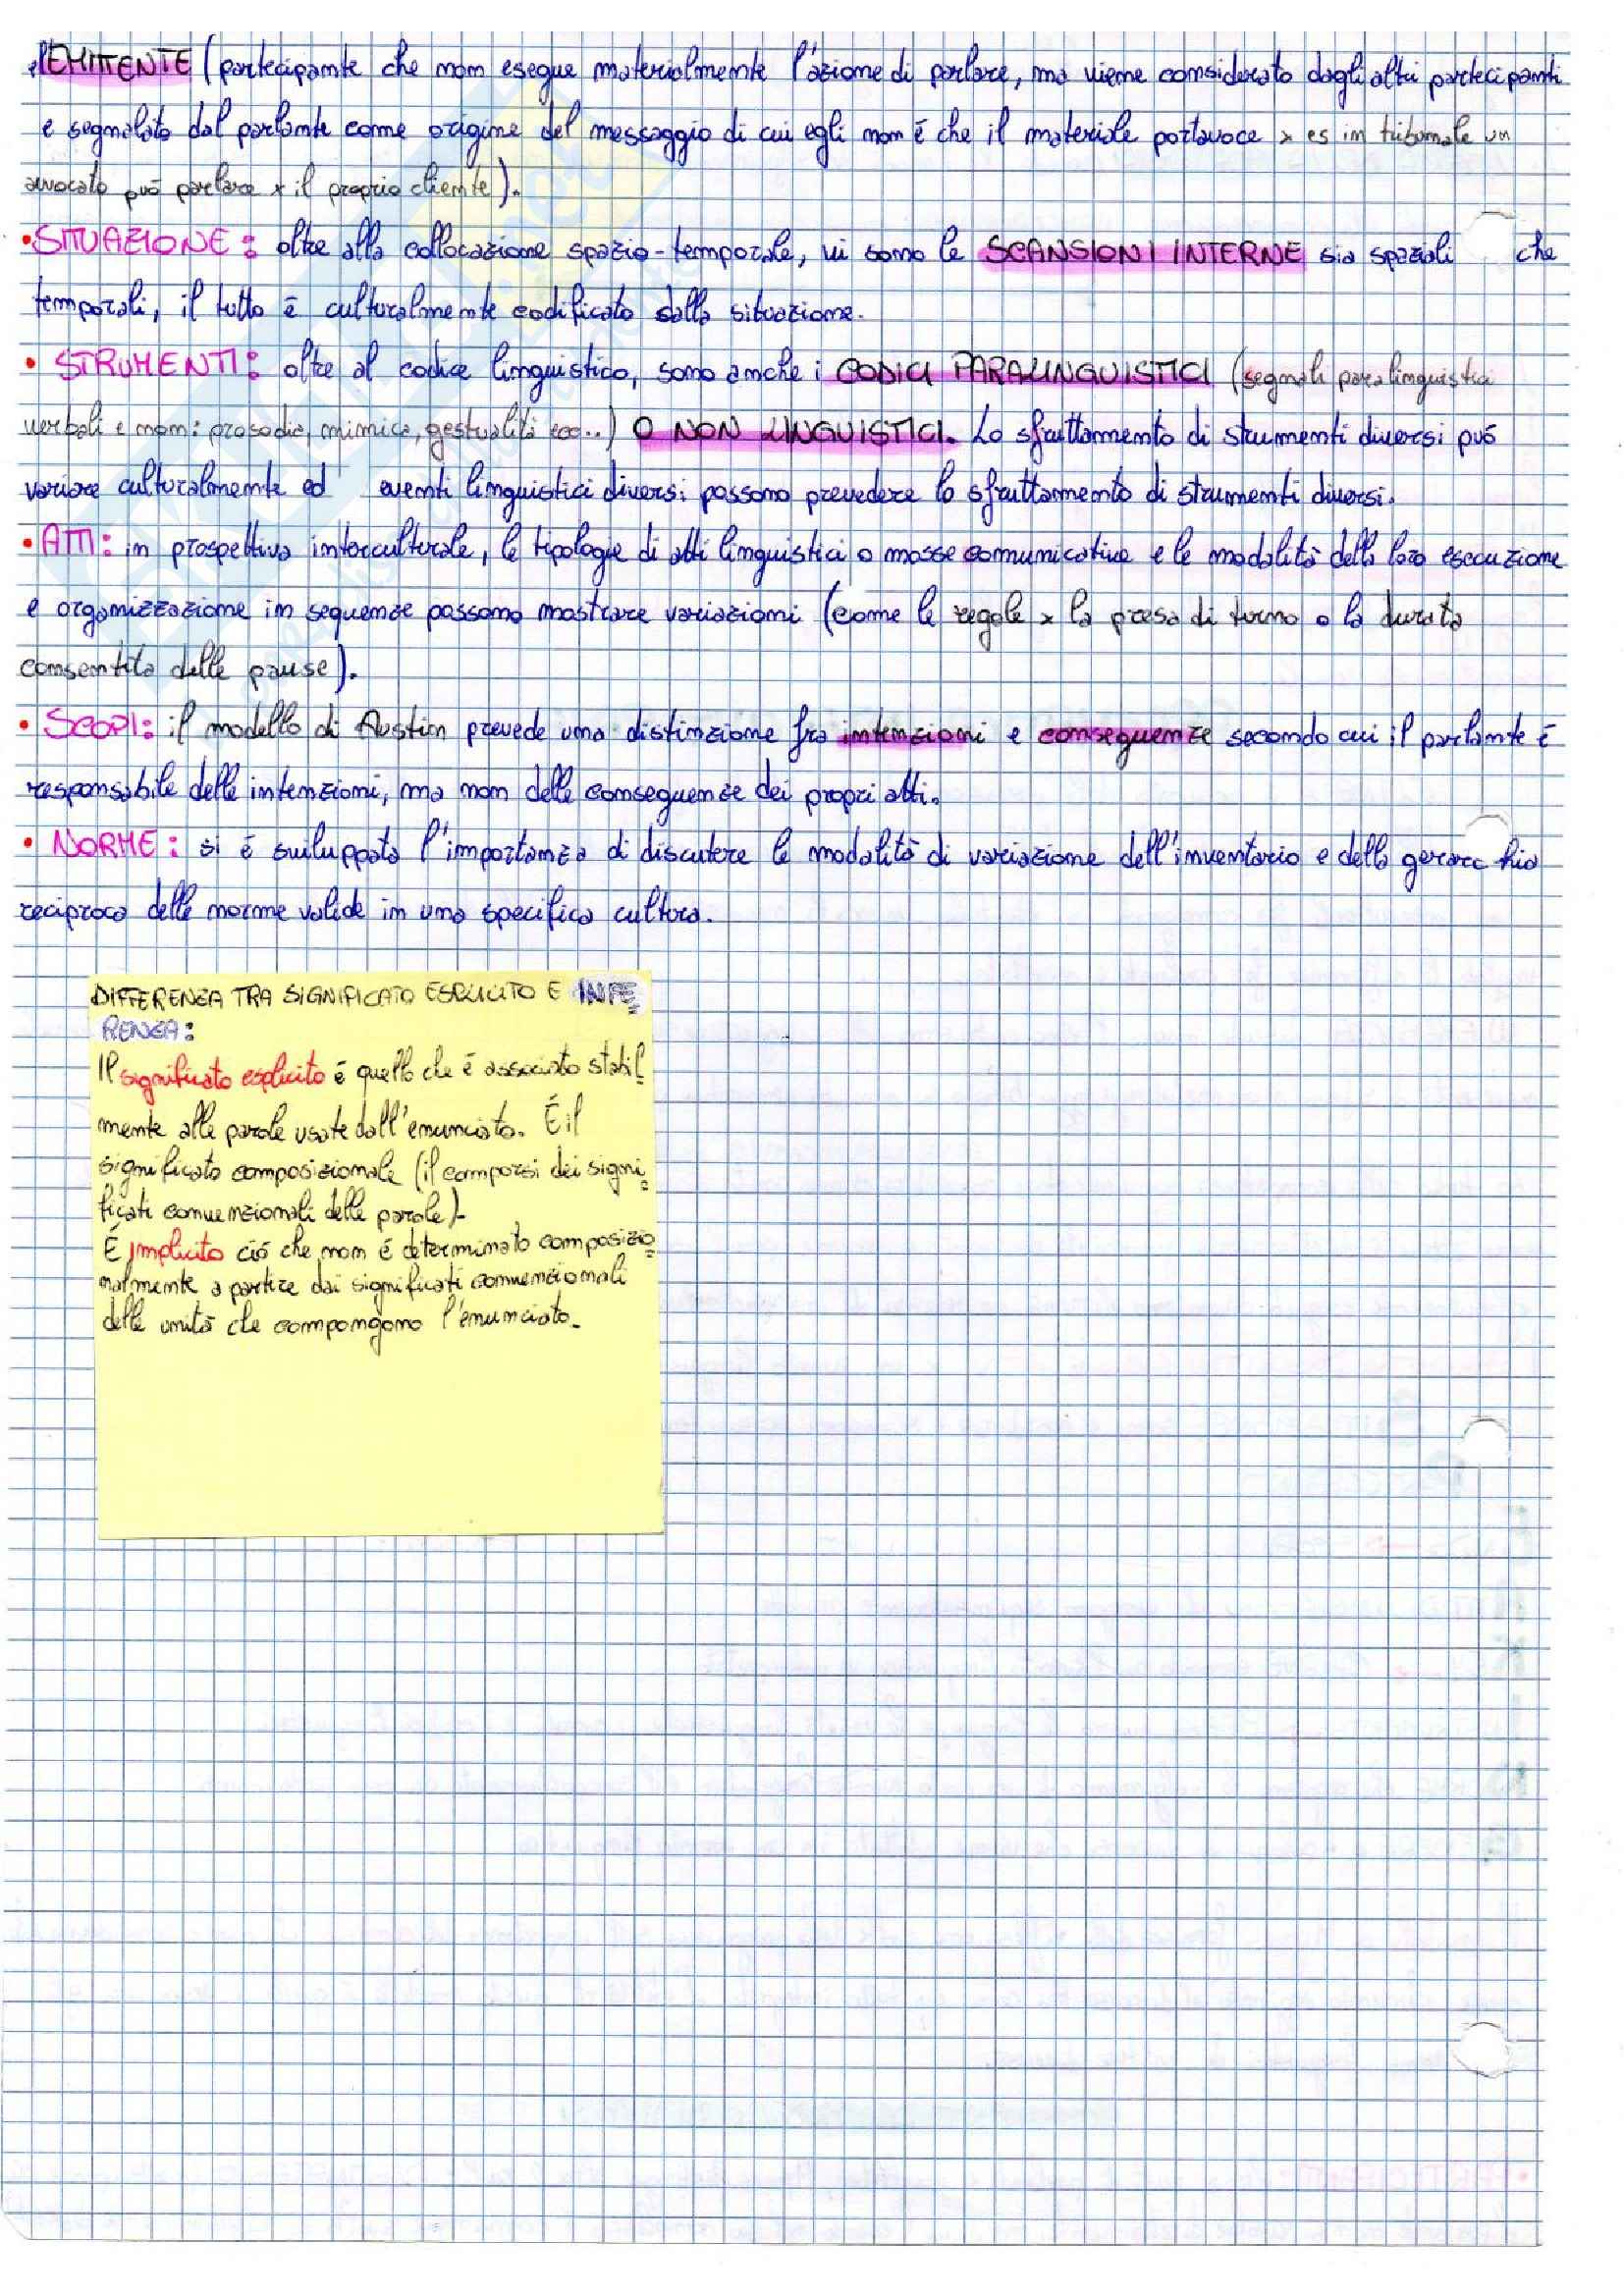 l'EMITTENTE (partecipante che non esegue materialmente l'azione di parlare, ma viene considerato dagli altri partecipanti
e segnalato dal parlante come origine del messaggio di cui egli non é che il materiale portavoce x es in tribunale un
avvocato puó parlare x il proprio cliente).
• SITUAZIONE: oltre alla collocazione spazio-temporale, vi sono le SCANSIONI INTERNE sia spaziali che
temporali, il tutto é culturalmente codificato dalla situazione.
• STRUMENTI: oltre al codice linguistico, sono anche i CODICI PARALINGUISTICI (segnali paralinguistici
verbali e non: prosodia, mimica, gestualitá ecc..) O NON LINGUISTICI. Lo sfruttamento di strumenti diversi puó
variare culturalmente ed eventi linguistici diversi possono prevedere lo sfruttamento di strumenti diversi.
• ATTI: in prospettiva interculturale, le tipologie di atti linguistici o mosse comunicative e le modalitá della loro esecuzione
e organizzazione in sequenze possono mostrare variazioni (come le regole x la presa di turno o la durata
consentita delle pause).
• SCOPI: il modello di Austin prevede una distinzione fra intenzioni e conseguenze secondo cui il parlante é
responsabile delle intenzioni, ma non delle conseguenze dei propri atti.
• NORME: si é sviluppata l'importanza di discutere le modalitá di variazione dell'inventario e della gerarchia
reciproca delle norme valide in una specifica cultura.
DIFFERENZA TRA SIGNIFICATO ESPLICITO E INFE
RENZA:
Il significato esplicito é quello che é associato stabil
mente alle parole usate dall'enunciato. É il
significato composizionale (il comporsi dei signi
ficati convenzionali delle parole).
É implicito ció che non é determinato composizio
nalmente a partire dai significati convenzionali
delle unitá che compongono l'enunciato.